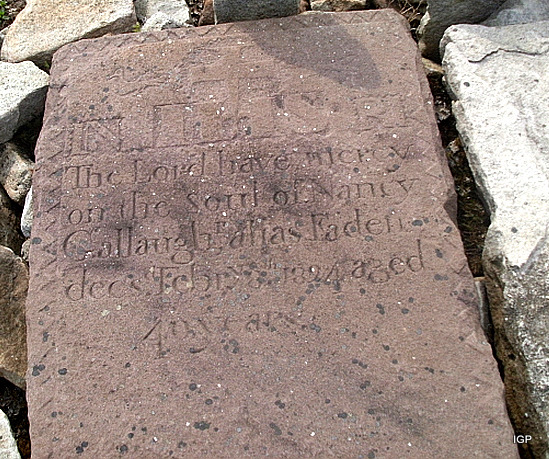 The Lord have mercy
on the Soul of Nancy
Gallaugh alias Faden
dec's Febry 8th aged
40 years
IGP